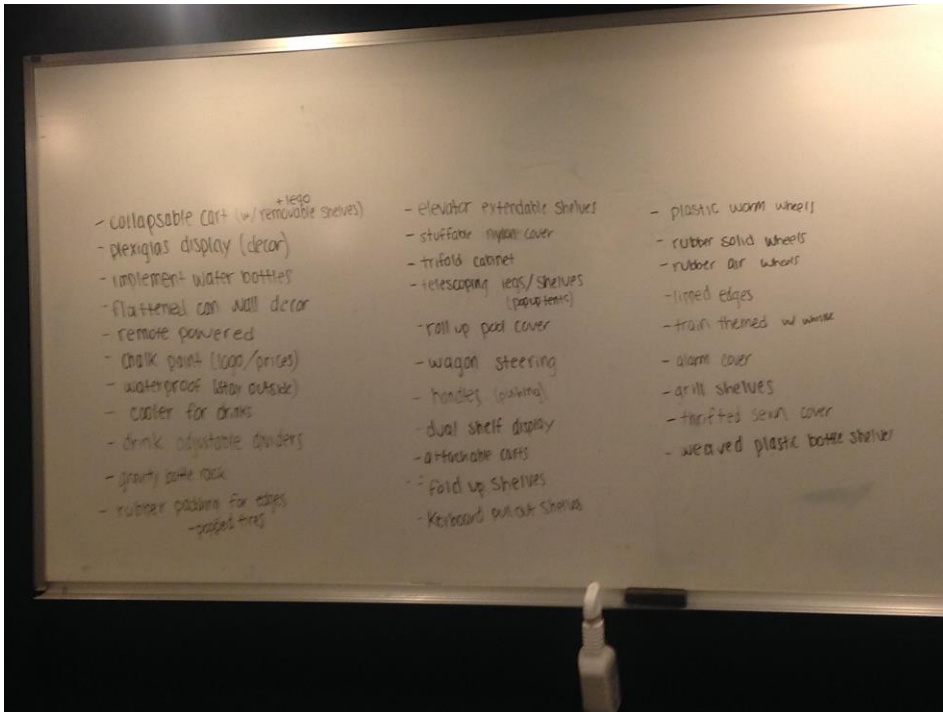 + lego
- collapsable cart (w/ removable shelves)
- plexiglas display (decor)
- implement water bottles
- flattened can wall decor
- remote powered
- chalk paint (logo/prices)
- waterproof (stay outside)
- cooler for drinks
- drink adjustable dividers
- gravity bottle rack
- rubber padding for edges
- popped tires
- elevator extendable shelves
- stuffable nylon cover
- trifold cabinet
- telescoping legs/shelves
(popup tents)
- roll up pool cover
- wagon steering
- handles (pushing)
- dual shelf display
- attachable carts
- fold up shelves
- Keyboard pull out shelves
- plastic worm wheels
- rubber solid wheels
- rubber air wheels
- lipped edges
- train themed w/
- alarm cover
- grill shelves
- thrifted sewn cover
- weaved plastic bottle shelves